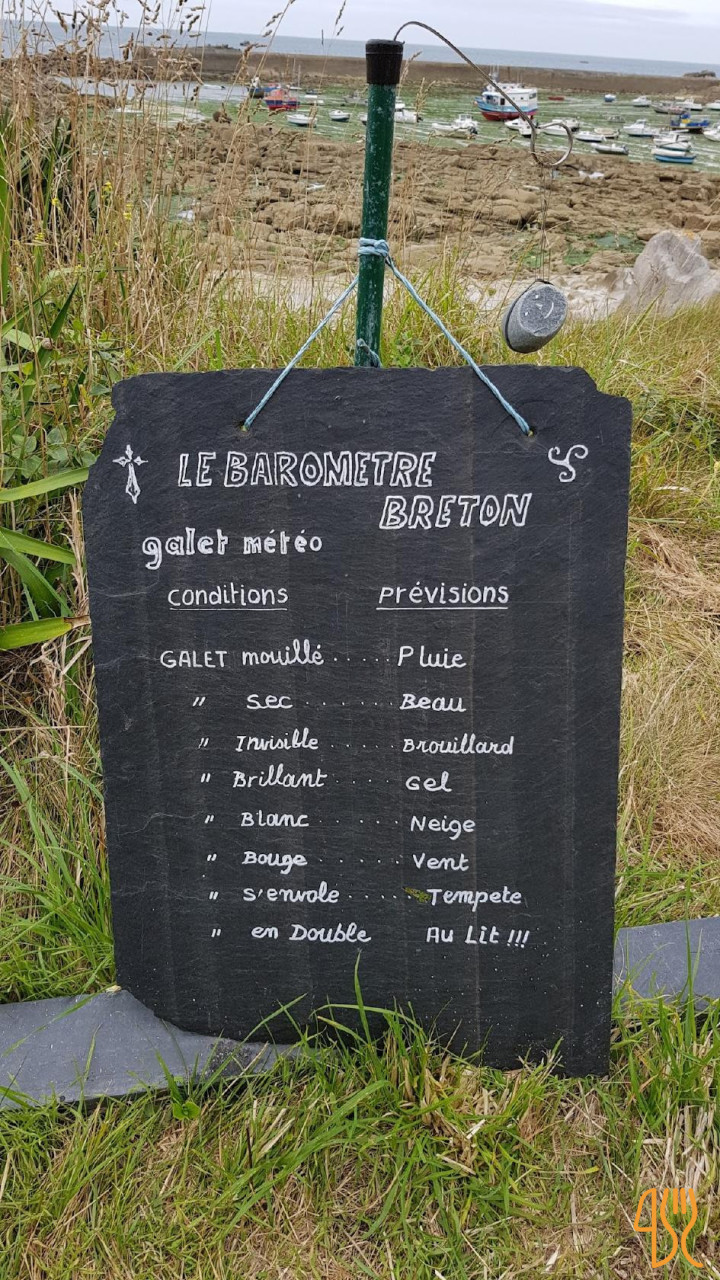 LE BAROMETRE
BRETON
galet météo
conditions prévisions
GALET mouillé ..... Pluie
〃 sec ...... Beau
〃 Invisible ..... Brouillard
〃 Brillant ..... Gel
〃 Blanc ...... Neige
〃 Bouge ...... Vent
〃 s'envole ...... Tempete
〃 en Double Au Lit !!!